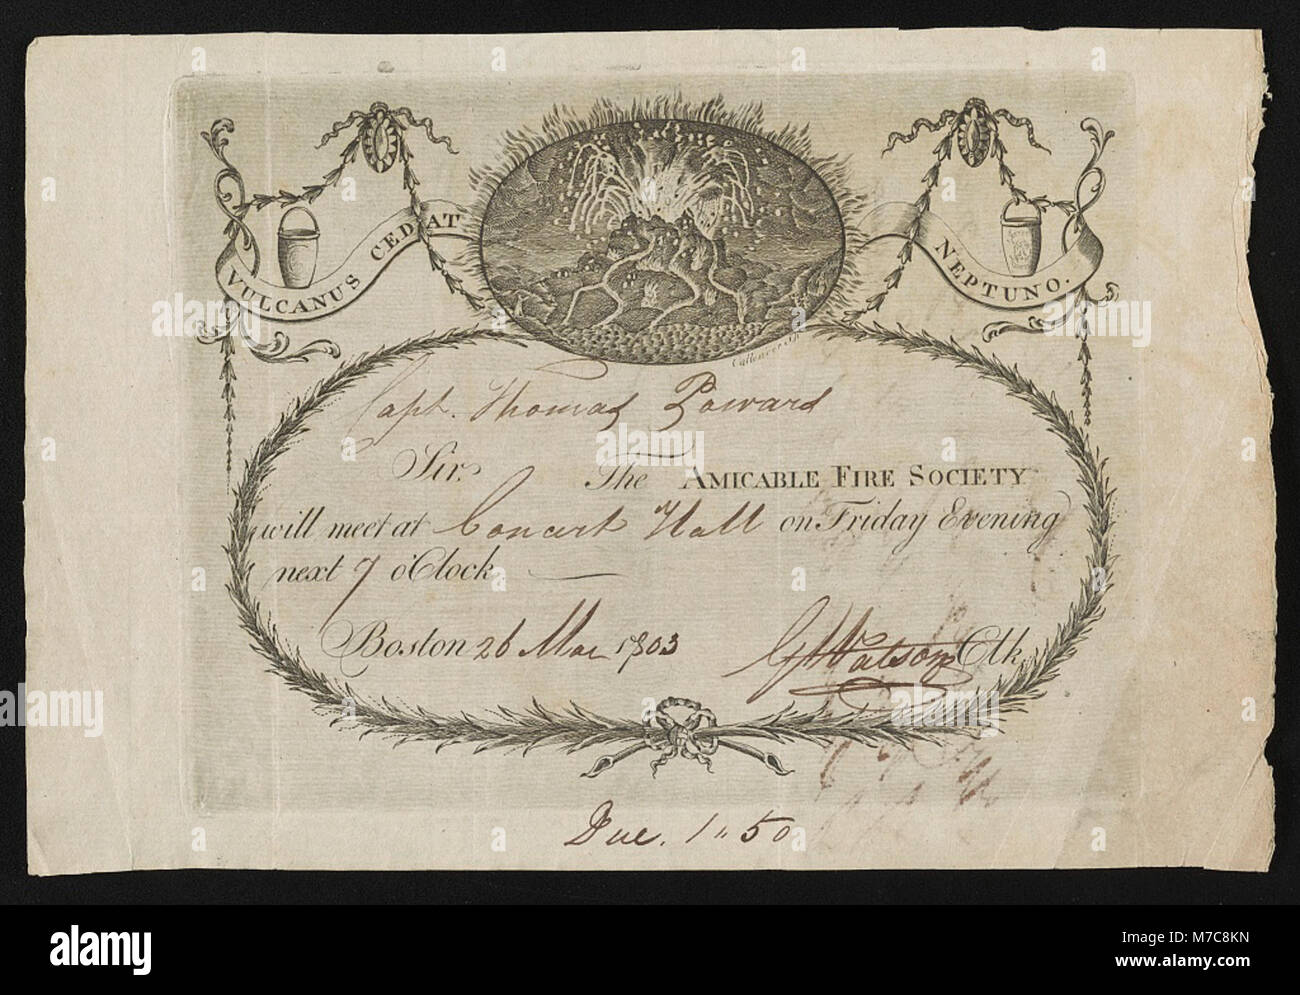 VULCANUS CEDAT NEPTUNO.
Callender Sc
Capt. Thomas
Sir. The AMICABLE FIRE SOCIETY
will meet at Concert Hall on Friday Evening
next 7 o'Clock
Boston 26 Mar 1803 Watson Clk
Due. 1"50
a alamy stock photo
M7C8KN
www.alamy.com